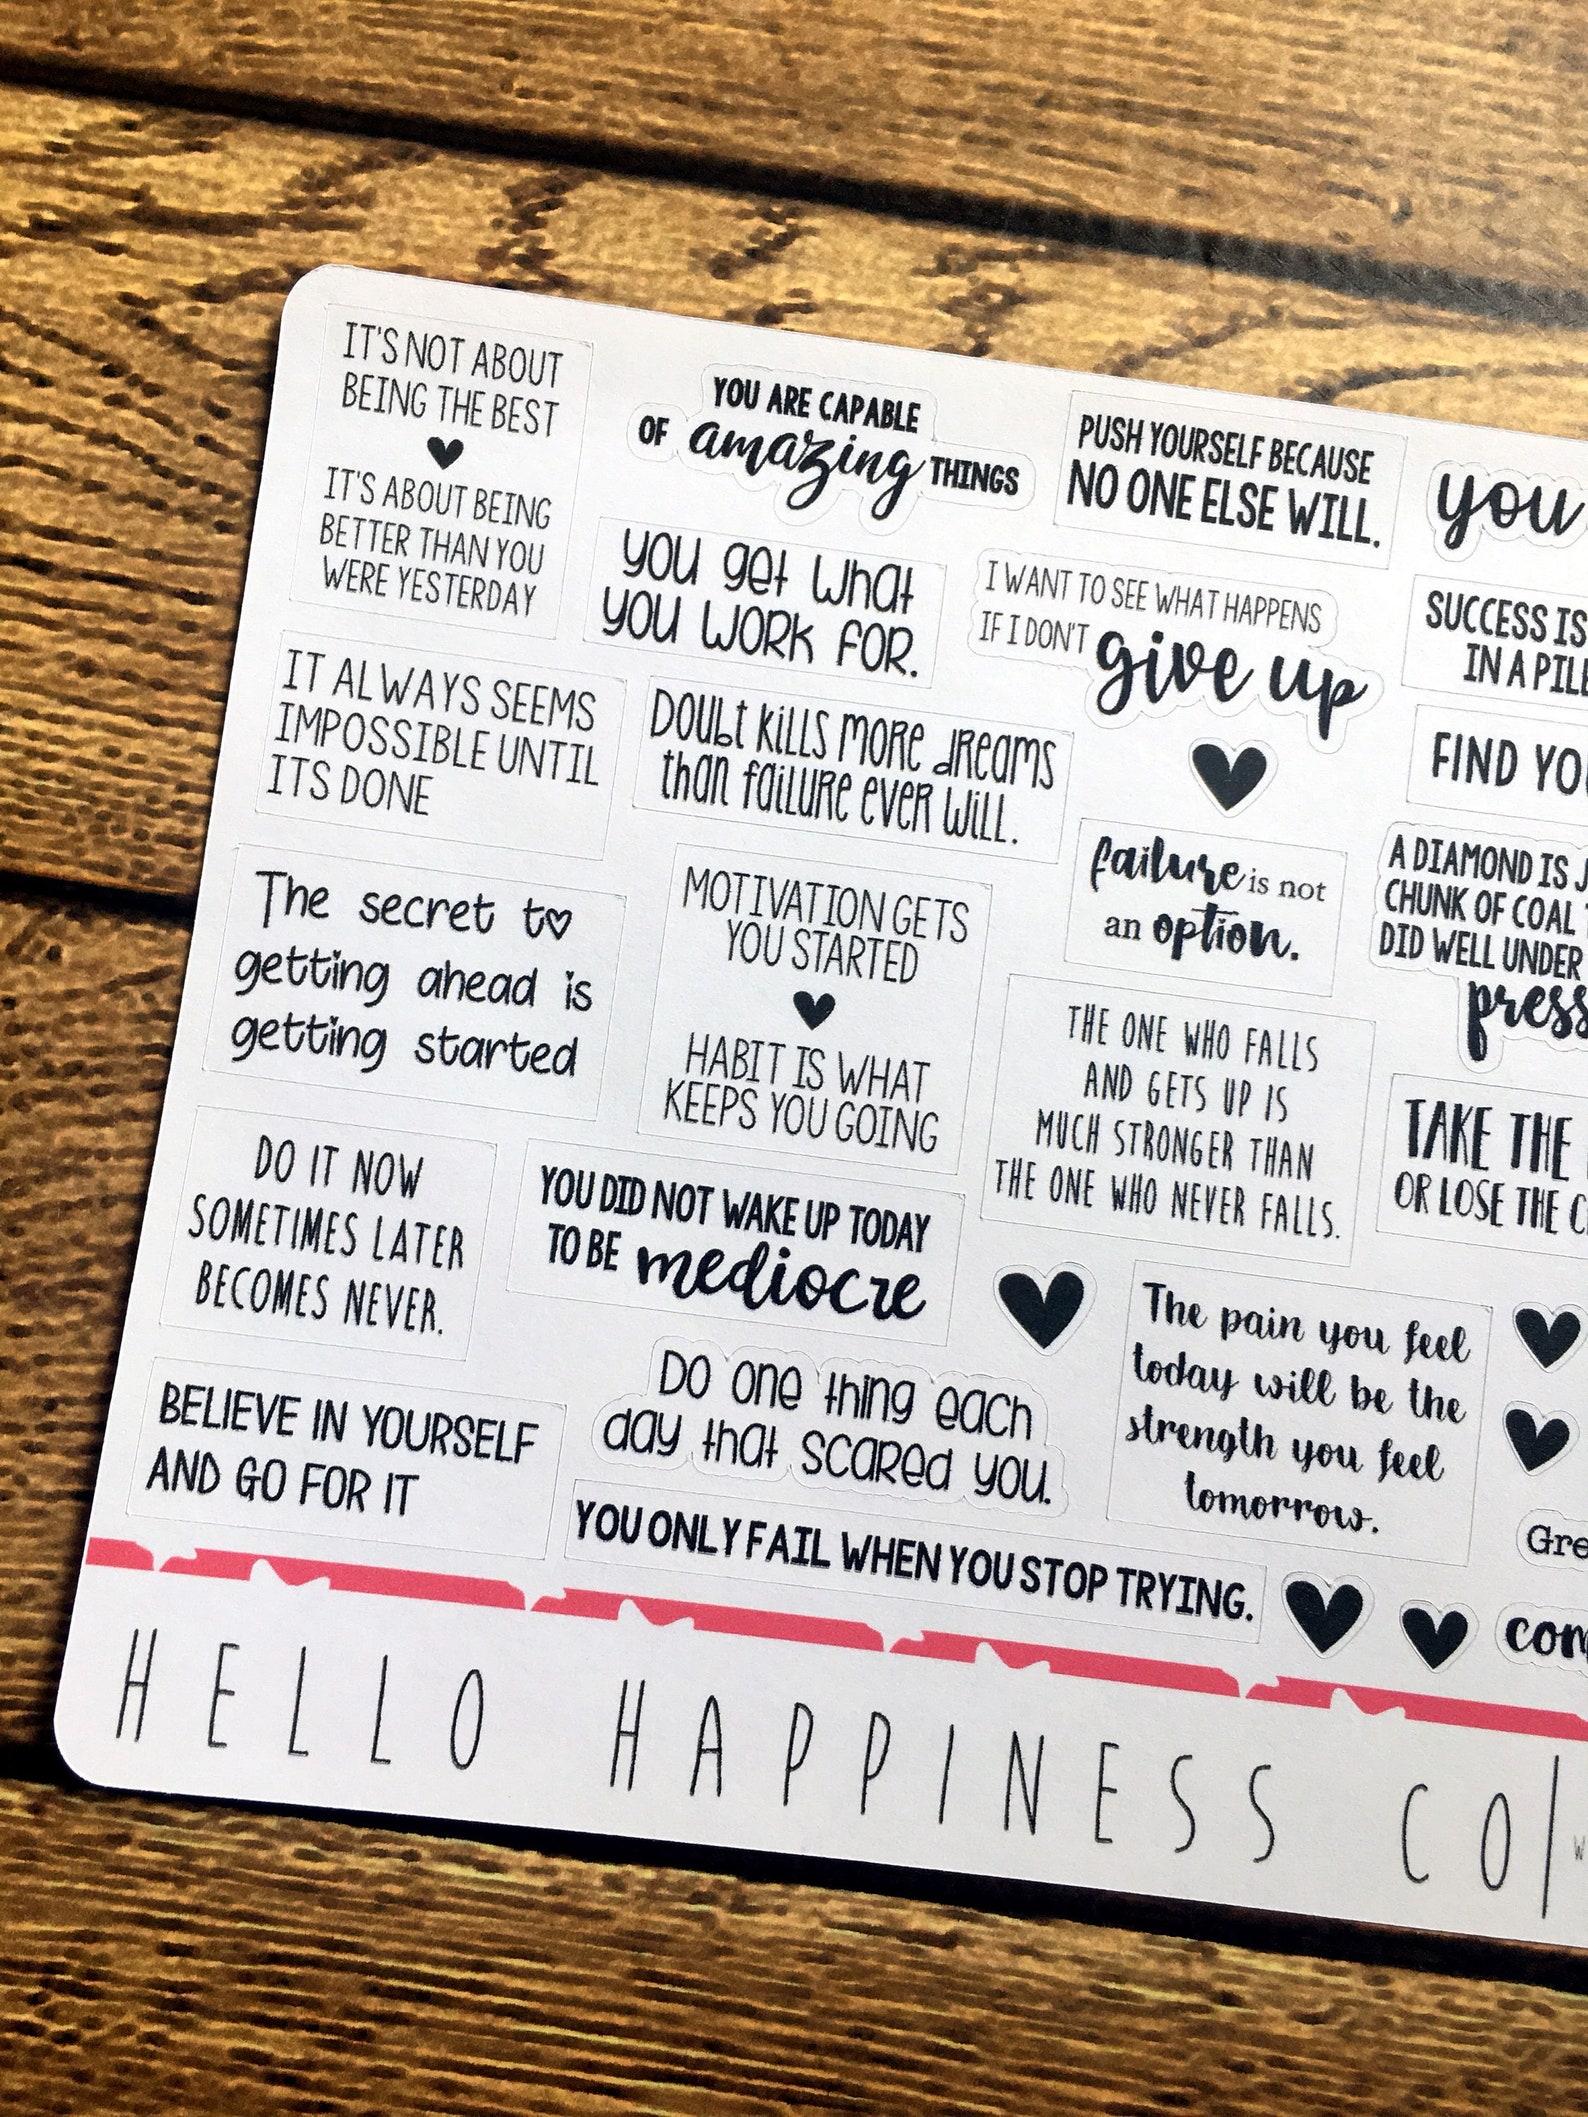 IT'S NOT ABOUT
BEING THE BEST
IT'S ABOUT BEING
BETTER THAN YOU
WERE YESTERDAY
IT ALWAYS SEEMS
IMPOSSIBLE UNTIL
ITS DONE
The secret to
getting ahead is
getting started
DO IT NOW
SOMETIMES LATER
BECOMES NEVER.
BELIEVE IN YOURSELF
AND GO FOR IT
YOU ARE CAPABLE
OF amazing THINGS
you get what
you work for.
Doubt kills more dreams
than failure ever will.
MOTIVATION GETS
YOU STARTED
HABIT IS WHAT
KEEPS YOU GOING
YOU DID NOT WAKE UP TODAY
TO BE mediocre
Do one thing each
day that scared you.
YOU ONLY FAIL WHEN YOU STOP TRYING.
PUSH YOURSELF BECAUSE
NO ONE ELSE WILL.
I WANT TO SEE WHAT HAPPENS
IF I DON'T give up
failure is not
an option.
THE ONE WHO FALLS
AND GETS UP IS
MUCH STRONGER THAN
THE ONE WHO NEVER FALLS.
The pain you feel
today will be the
strength you feel
tomorrow.
you
SUCCESS IS
IN A PILE
FIND YO
A DIAMOND IS J
CHUNK OF COAL
DID WELL UNDER
press
TAKE THE
OR LOSE THE C
Gre
com
HELLO HAPPINESS CO|